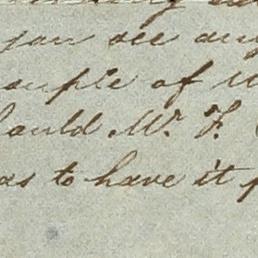 you see any
couple of
should Mr. F.
as to have it